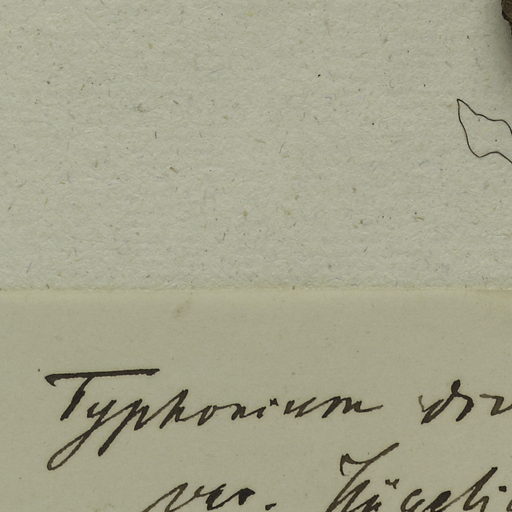 Typhonium div
var. Hügeli